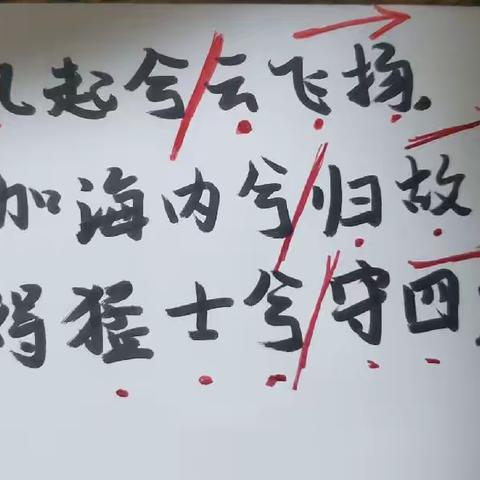 起兮云飞扬.
加海内兮归故
猛士兮守四